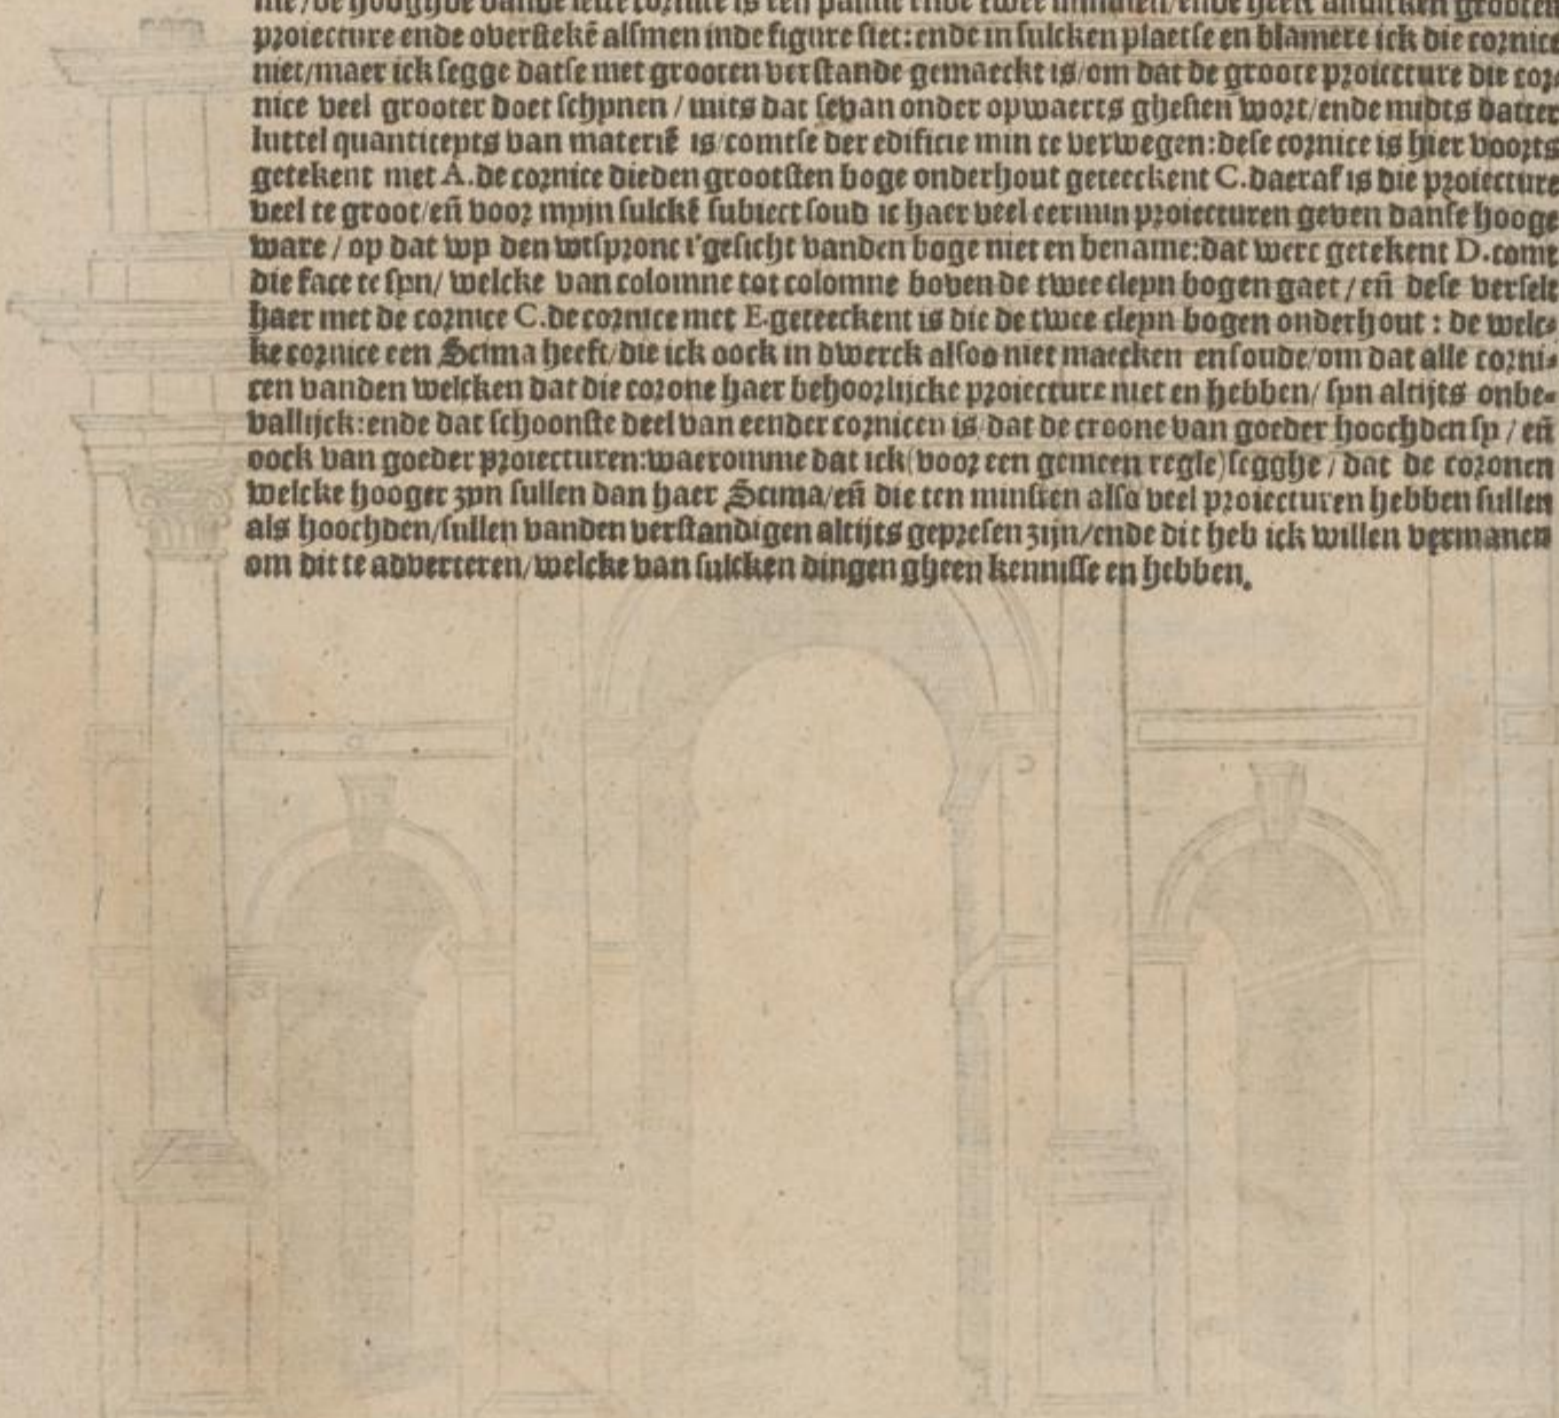 nie/de hooghde vande leste cornice is een palme ende twee minuten/ende heeft alsulcken grooten
proiecture ende overstekē alsmen inde figure siet: ende in sulcken plaetse en blamere ick die cornice
niet/maer ick segge datse met grooten verstande gemaeckt is/om dat de groote proiecture die cor-
nice veel grooter doet schynen / mits dat sevan onder opwaerts ghesien wort/ende midts datter
luttel quantiteyts van materiē is/comtse der edificie min te verwegen: dese cornice is hier voorts
getekent met A. de cornice die den grootsten boge onderhout geteeckent C. daeraf is die proiecture
veel te groot/eñ voor mijn sulckē subiect soud ic haer veel eer min proiecturen geven danse hooge
ware / op dat wy den wtspronc t'gesicht vanden boge niet en bename: dat werc getekent D. comt
die face te syn/ welcke van colomne tot colomne boven de twee cleyn bogen gaet / eñ dese verselt
haer met de cornice C. de cornice met E. geteeckent is die de twee cleyn bogen onderhout : de welc-
ke cornice een Scima heeft/die ick oock in dwerck alsoo niet maecken en soude/om dat alle corni-
cen vanden welcken dat die corone haer behoorlijcke proiecture niet en hebben/ syn altijts onbe-
vallijck: ende dat schoonste deel van eender cornicen is/ dat de croone van goeder hoochden sy / eñ
oock van goeder proiecturen: waeromme dat ick (voor een gemeen regle) segghe / dat de coronen
welcke hooger zyn sullen dan haer Scima/eñ die ten minsten also veel proiecturen hebben sullen
als hoochden/sullen vanden verstandigen altijts gepresen zijn/ende dit heb ick willen vermanen
om dit te adverteren/welcke van sulcken dingen gheen kennisse en hebben.